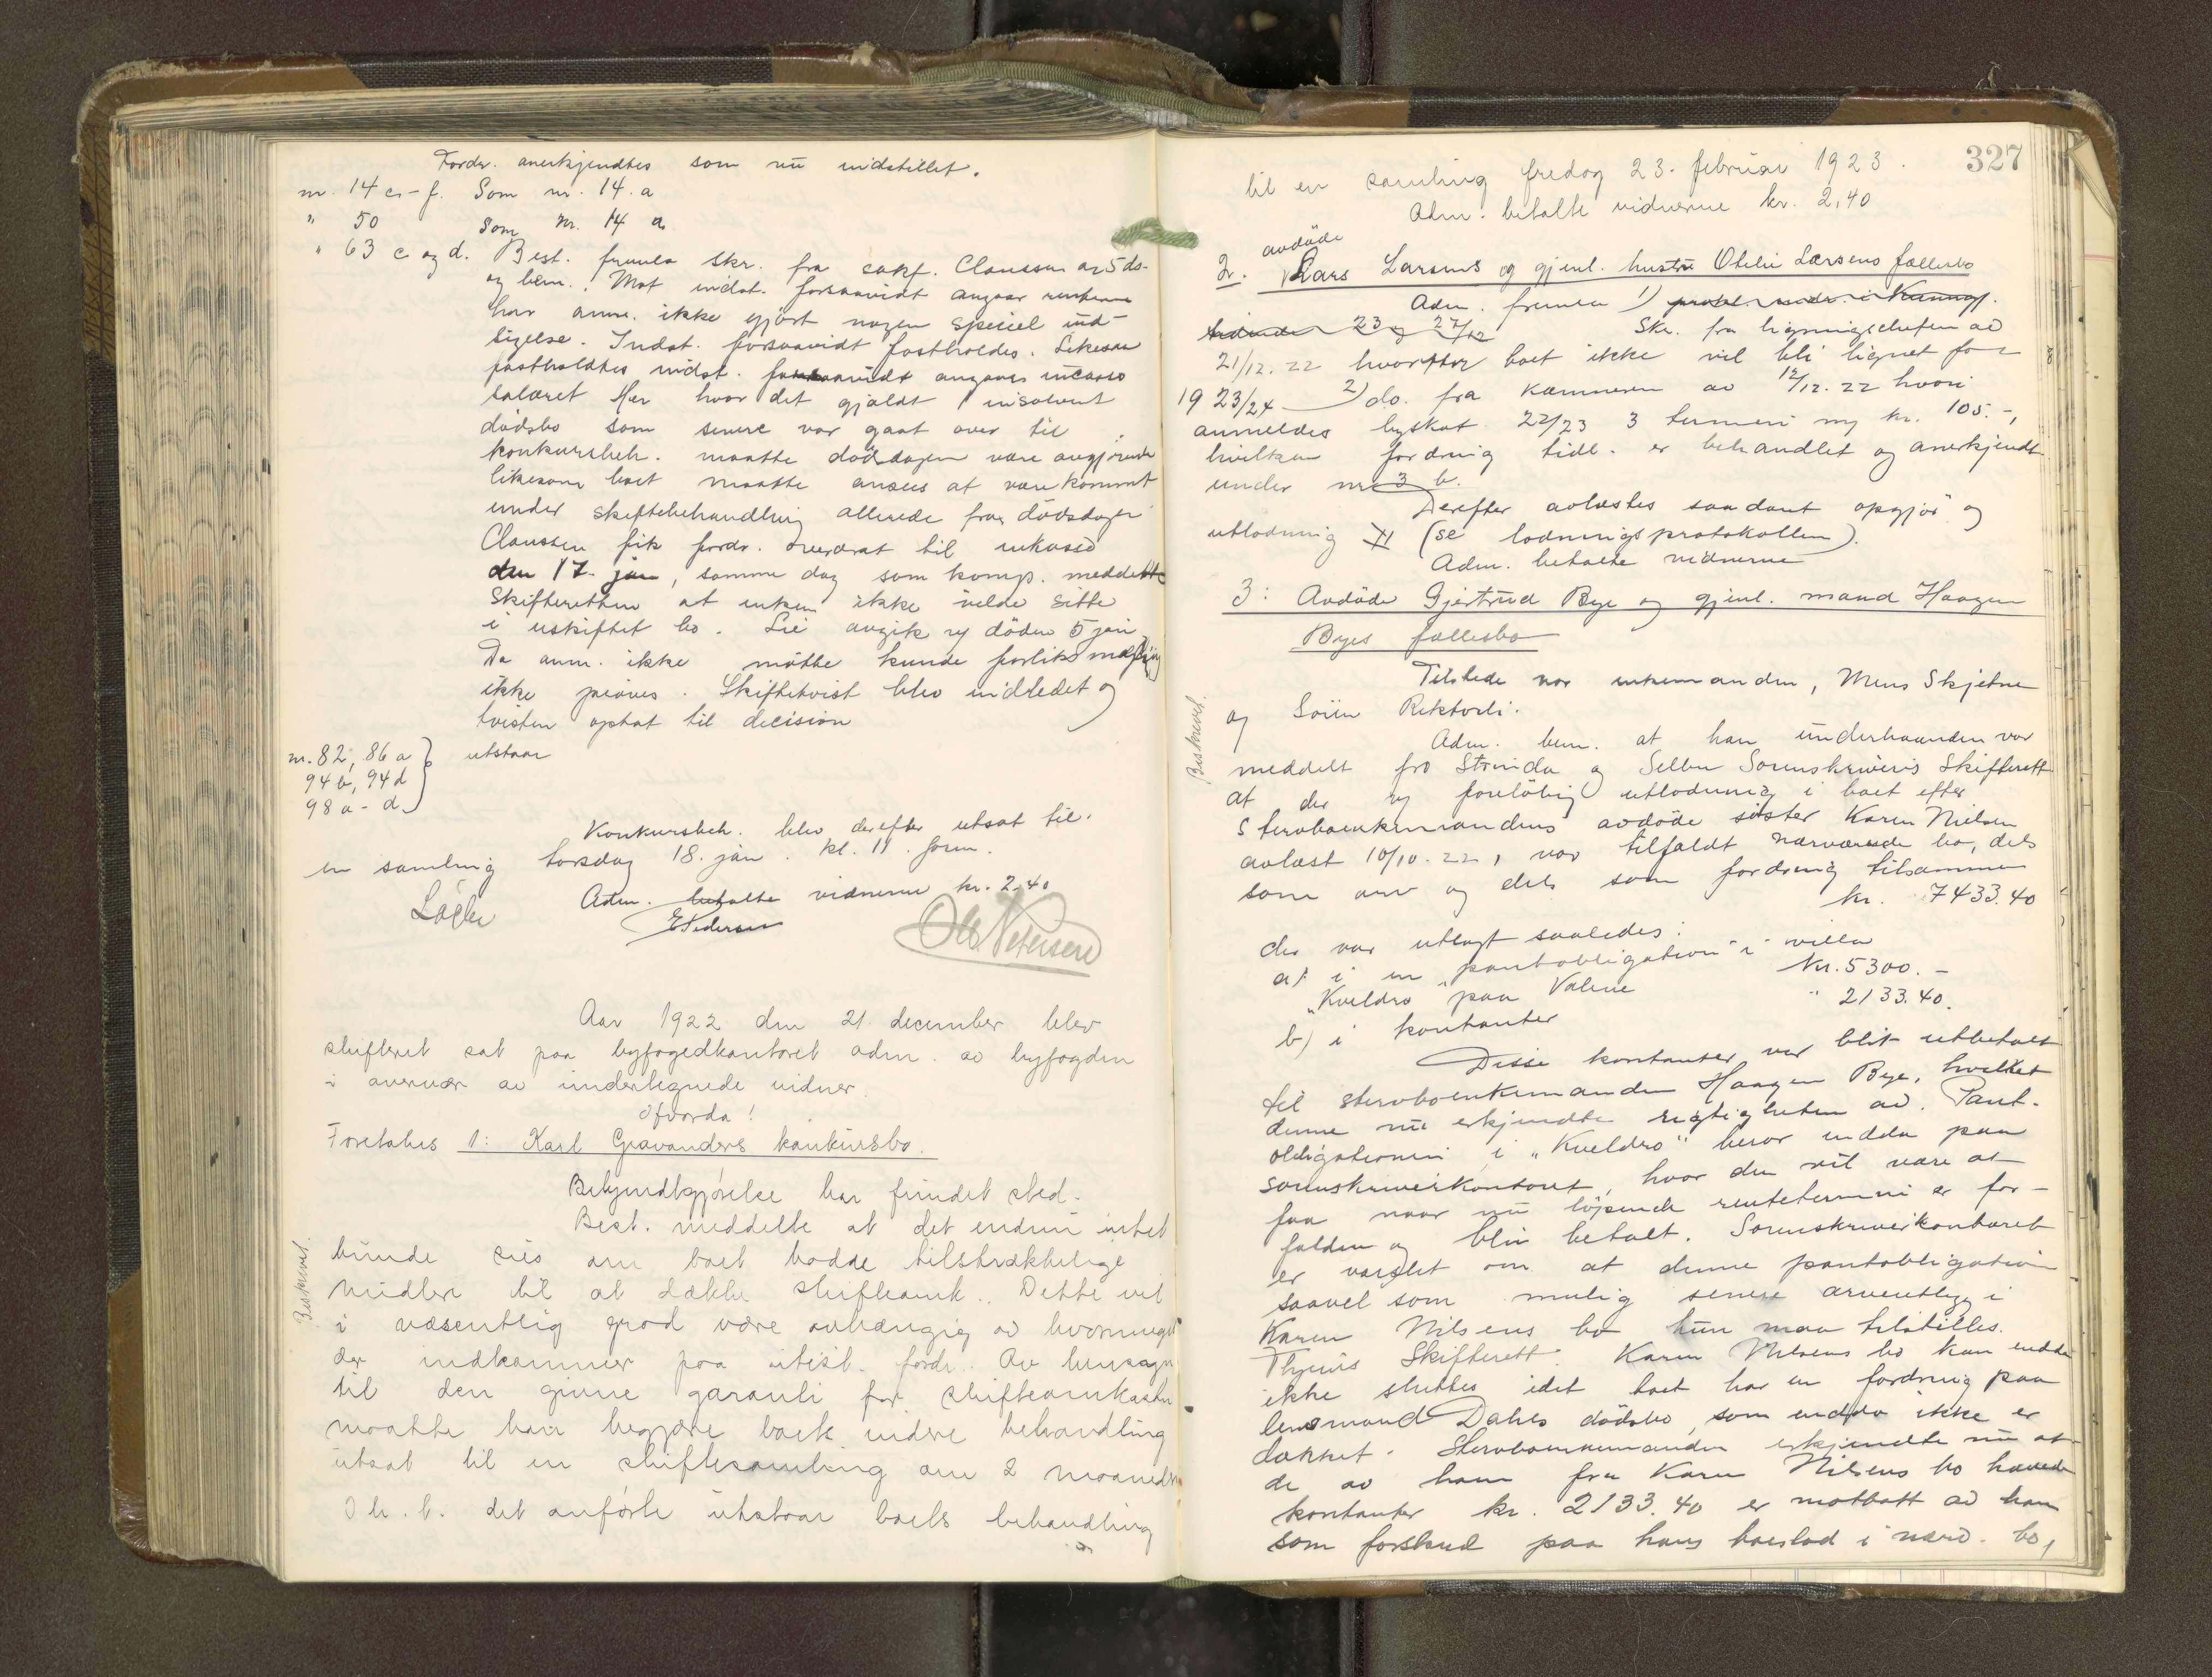 Fordr. anerkjendtes som nu indstillet.
nr. 14 c-f. Som nr. 14 a
" 50 Som nr. 14 a
" 63 c og d. Best. fremla skr. fra sakf. Claussen av 5 ds-
og bem. Mot indst. forsaavidt angaar renterne
har anm. ikke gjort nogen speciel ind-
sigelse. Indst. forsaavidt fastholdes. Likesaa
fastholdtes indst. forsaavidt angaaes incasso
salæret Her hvor det gjaldt insolvent
dødsbo som senere var gaat over til
konkursbeh. maatte dødsdagen være avgjørende
likesom boet maatte ansees at være kommet
under skiftebehandling allerede fra dødsdagen
Claussen fik fordr. overdrat til inkasso
den 17. jan, samme dag som komp. meddelte
Skifteretten at enken ikke vilde sitte
i uskiftet bo. Lie avgik ved døden 5 jan
Da anm. ikke møtte kunde forliksmægling
ikke prøves. Skiftetvist blev indledet og
tvisten optat til decision
nr. 82, 86 a utstaar
94 b, 94 d
98 a - d
Konkursbeh. blev derefter utsat til
en samling torsdag 18. jan. kl. 11 form.
Adm. betalte vidnerne kr. 2,40
E Pedersen
Ole Petersen
Aar 1922 den 21. december blev
skifteret sat paa byfogedkontoret adm. av byfogden
i overvær av undertegnede vidner.
Hvorda!
Foretokes 1: Karl Gravanders konkursbo.
Bekjendtgjørelse har fundet sted.
Best. meddelte at det endnu intet
Beskrevet.
kunde sies om boet hadde tilstrækkelige
midler til at dække skifteomk. Dette vil
i væsentlig grad være avhængig av hvormeget
der indkommer paa utest. fordr. Av hensyn
til den givne garanti for skifteomkostn
maatte han begjære boets videre behandling
utsat til en skiftesamling om 2 maaneder
I h. t. det anførte utstaar boets behandling
327
til en samling fredag 23. februar 1923.
Adm. betalte vidnerne kr. 2,40
avdøde
2. Lars Larsens og gjenl. hustru Otelie Larsens fællesbo
Adm. fremla 1)
tidende 23 og 27/12 Skr. fra ligningschefen av
21/12. 22 hvorefter boet ikke vil bli lignet for
1923/24 2) do. fra kæmneren av 12/12. 22 hvori
anmeldes byskat 22/23 3 termin kr. 105.-,
hvilken fordring tidl. er behandlet og anerkjendt
under nr 3 b.
Derefter avlæstes saadant opgjør og
utlodning (se lodningsprotokollen).
Adm. betalte vidnerne
3: Avdøde Gjertrud Bye og gjenl. mand Haagen
Byes fællesbo
Tilstede var enkemanden, Mens Skjetne
og Søren Rektorli.
Beskrevet.
Adm. bem. at han underhaanden var
meddelt fra Strinda og Selbu Sorenskriveris Skifterett
at der ved foreløbig utlodning i boet efter
Stervboenkemandens avdøde søster Karen Nielsen
avlæst 10/10. 22, var tilfaldt nærværende bo, dels
som arv og dels som fordring tilsammen
kr. 7433.40
der var utlagt saaledes:
a) i en pantobligation i villa
„Kveldro" paa Valene Kr. 5300.-
b) i kontanter " 2133.40.
Disse kontanter var blit utbetalt
til stervboenkemanden Haagen Bye, hvilket
denne nu erkjendte rigtigheten av. Pant-
obligationen i „Kveldro" beror endda paa
sorenskriverkontoret, hvor den vil være at
faa naar nu løpende rentetermin er for-
falden og blir betalt. Sorenskriverkontoret
er varslet om at denne pantobligation
saavel som mulig senere arveutlegg i
Karen Nilsens bo kun maa tilstilles
Thjems Skifterett. Karen Nilsens bo kan endda
ikke sluttes idet boet har en fordring paa
lensmand Dahls dødsbo, som endda ikke er
dækket. Stervboenkemanden erkjendte nu at
de av ham fra Karen Nilsens bo hævede
kontanter kr. 2133.40 er mottatt av ham
som forskud paa hans boeslod i nærv. bo,